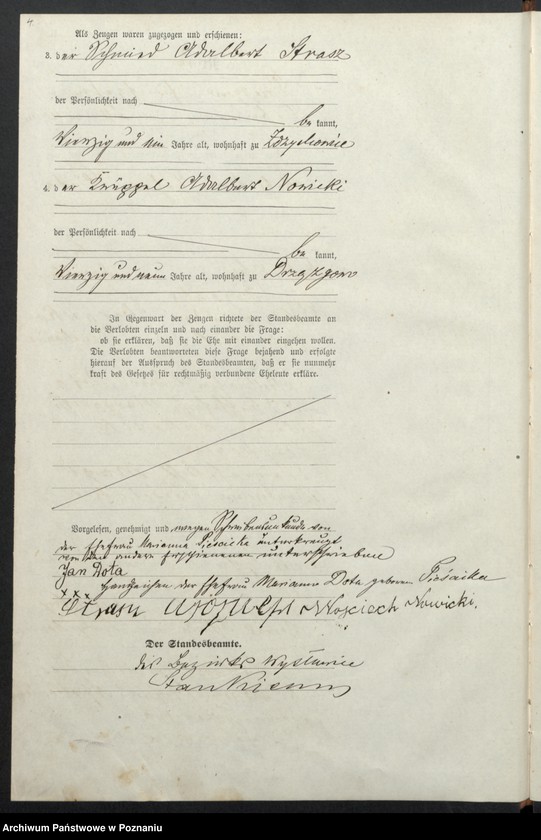 4.
Als Zeugen waren zugezogen und erschienen:
3. der Schmied Adalbert Strasz
der Persönlichkeit nach
be kannt,
Vierzig und ein Jahre alt, wohnhaft zu Zdzychowice
4. der Krüppel Adalbert Nowicki
der Persönlichkeit nach
be kannt,
Vierzig und neun Jahre alt, wohnhaft zu Drzązgowo
In Gegenwart der Zeugen richtete der Standesbeamte an
die Verlobten einzeln und nach einander die Frage:
ob sie erklären, daß sie die Ehe mit einander eingehen wollen.
Die Verlobten beantworteten diese Frage bejahend und erfolgte
hierauf der Ausspruch des Standesbeamten, daß er sie nunmehr
kraft des Gesetzes für rechtmäßig verbundene Eheleute erkläre.
Vorgelesen, genehmigt und wegen Schreibensunkunde von
der Ehefrau Marianna Pieścicka unterkreuzt
von den andern Erschienenen unterschrieben
Jan Dota
xxx Handzeichen der Ehefrau Marianna Dota geborene
Strasz Wojciech Nowicki.
Der Standesbeamte.
des Bezirks
Stankiewicz
Archiwum Państwowe w Poznaniu